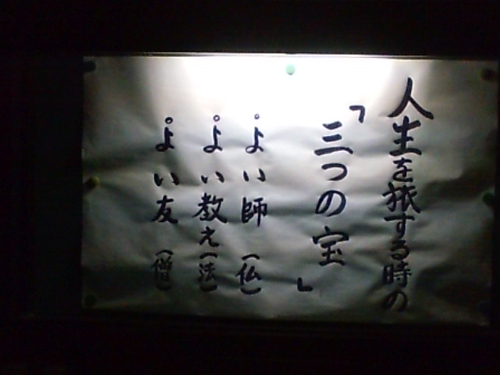 人生を旅する時の
「三つの宝」
。よい師（仏）
。よい教え（法）
。よい友（僧）